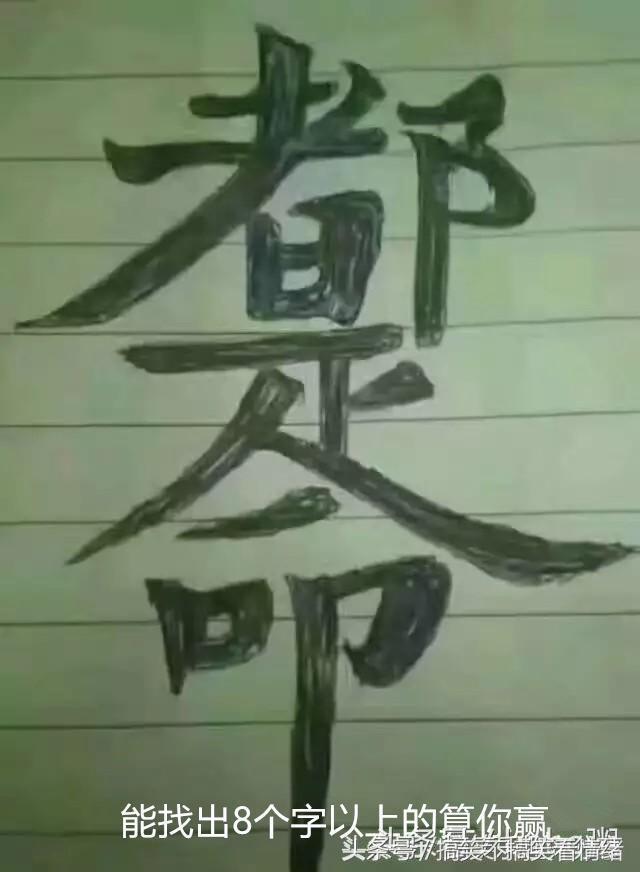 都是命
能找出8个字以上的算你赢
头条号 / 搞笑不搞笑看情绪